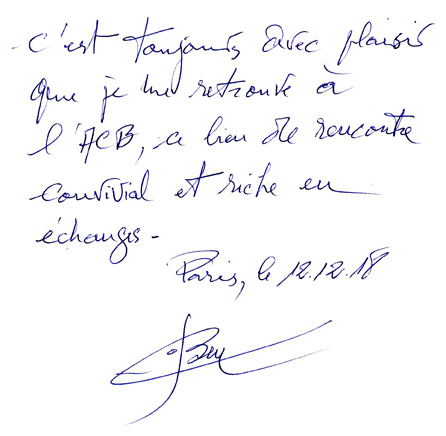 - C'est toujours avec plaisir
que je me retrouve à
l'ACB, ce lieu de rencontre
convivial et riche en
échanges -
Paris, le 12.12.18